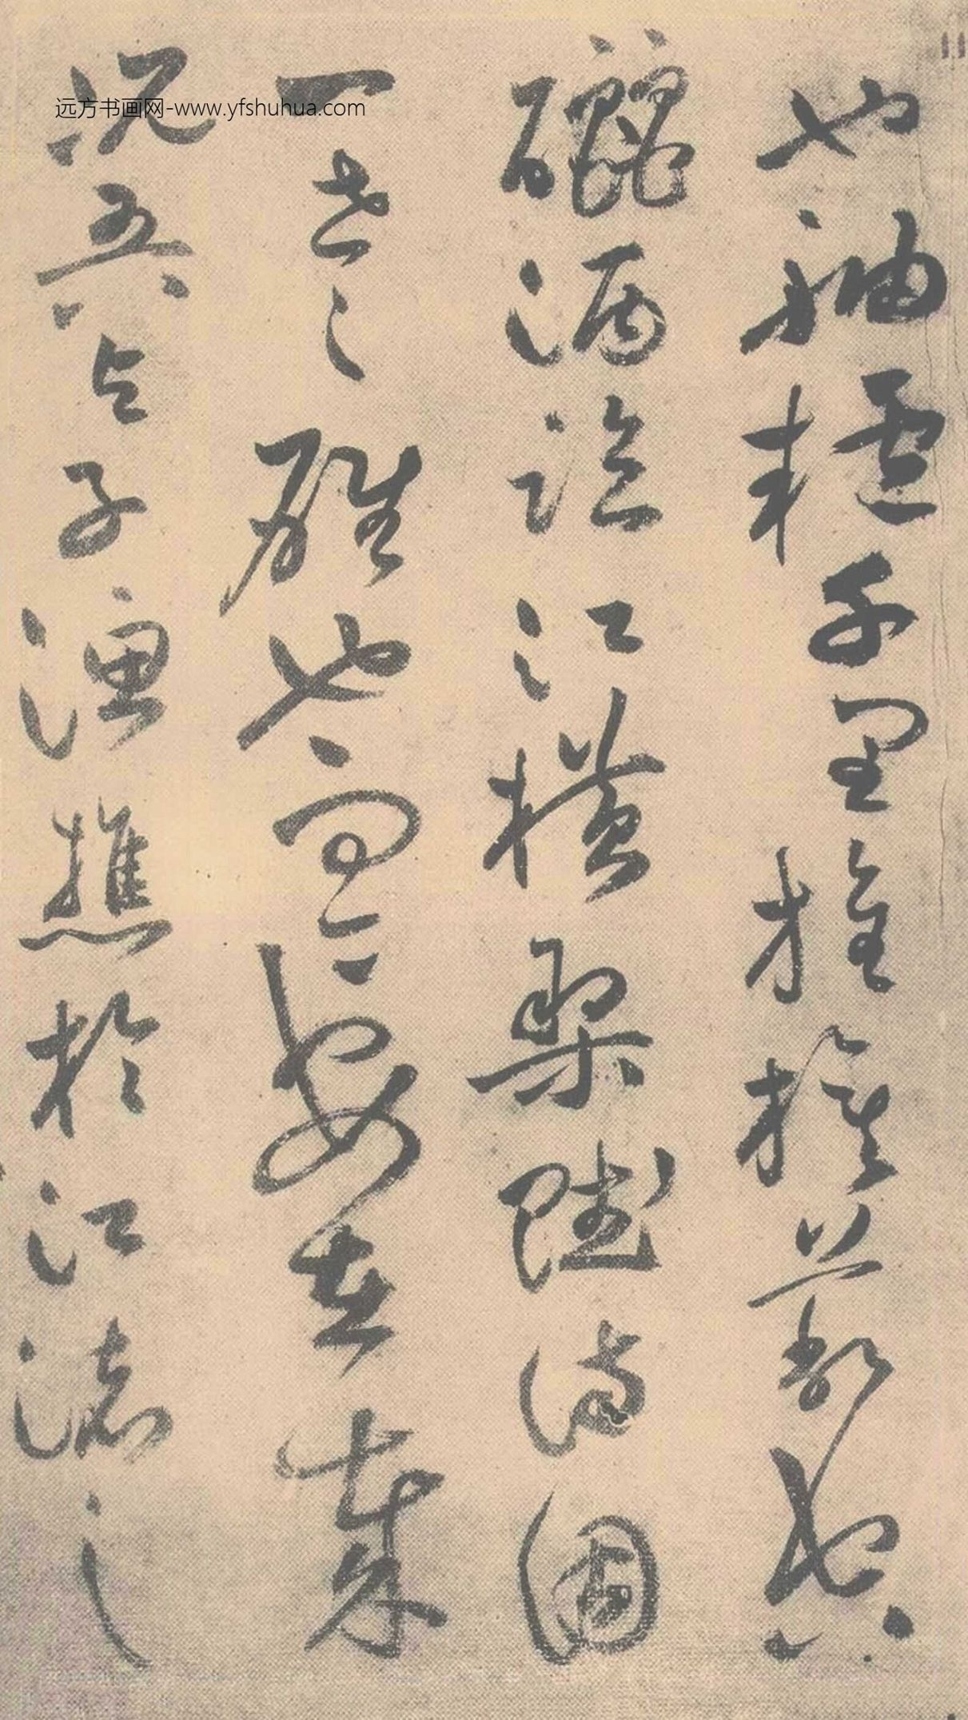 也舳舻千里旌旗蔽空
釃酒临江横槊赋诗固
一世之雄也而今安在哉
况吾与子渔樵於江渚之
远方书画网-www.yfshuhua.com